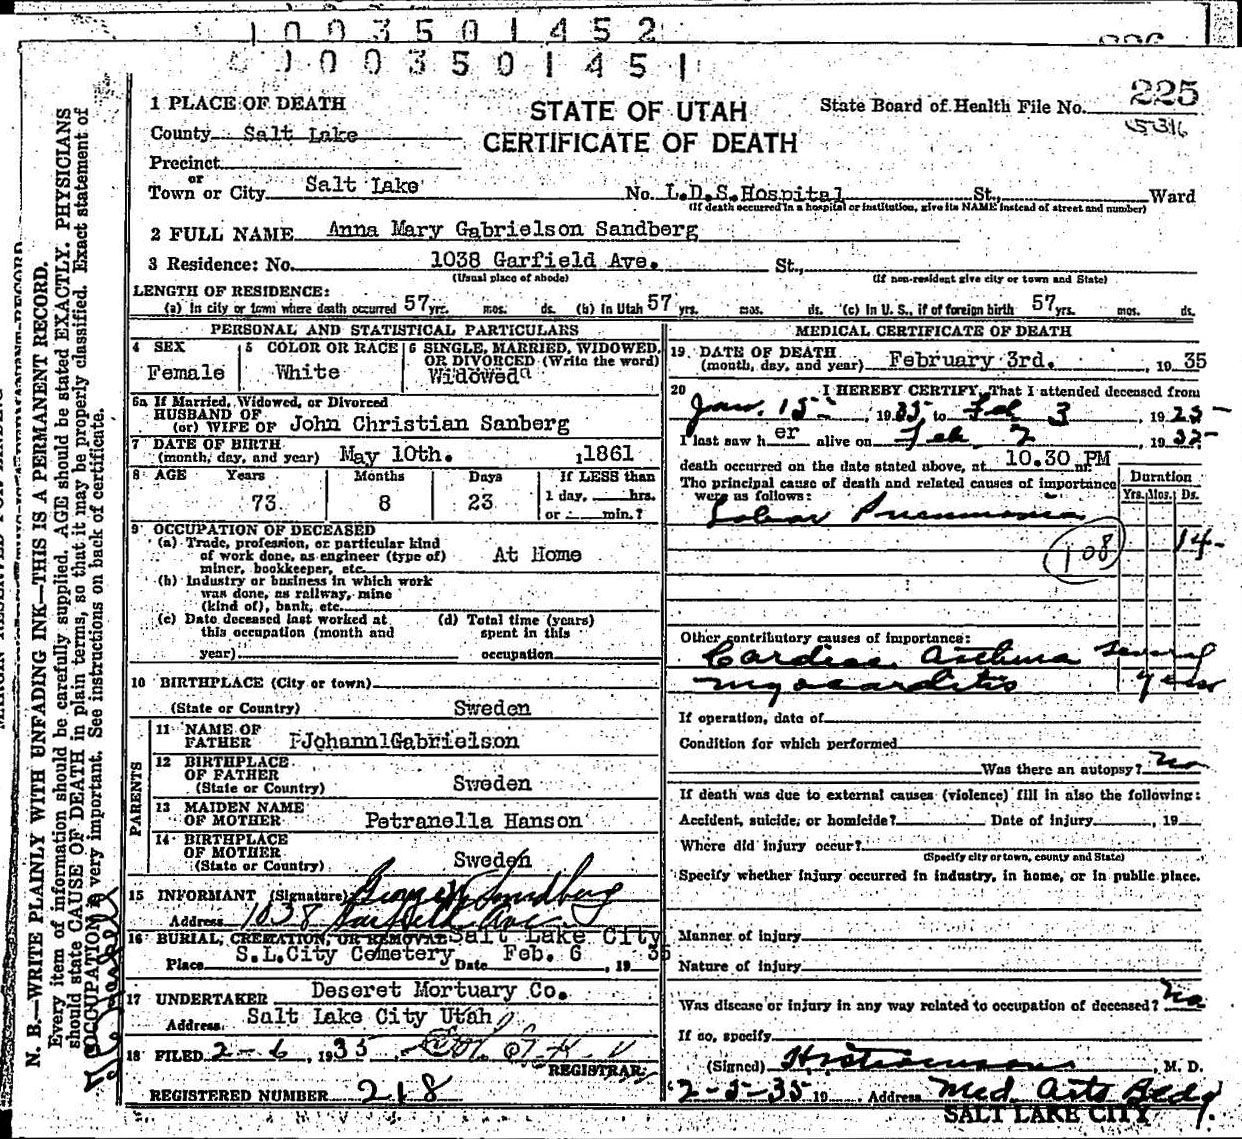 1003501452
1003501451
225
STATE OF UTAH
CERTIFICATE OF DEATH
State Board of Health File No.
1 PLACE OF DEATH
County Salt Lake
Precinct
or
Town or City Salt Lake No. L.D.S. Hospital St., Ward
(If death occurred in a hospital or institution, give its NAME instead of street and number)
2 FULL NAME Anna Mary Gabrielson Sandberg
3 Residence: No. 1038 Garfield Ave. St.,
(Usual place of abode) (If non-resident give city or town and State)
LENGTH OF RESIDENCE:
(a) In city or town where death occurred 57 yrs. mos. ds. (b) In Utah 57 yrs. mos. ds. (c) In U. S., if of foreign birth 57 yrs. mos. ds.
PERSONAL AND STATISTICAL PARTICULARS
4 SEX
Female
5 COLOR OR RACE
White
6 SINGLE, MARRIED, WIDOWED,
OR DIVORCED (Write the word)
Widowed
6a If Married, Widowed, or Divorced
HUSBAND OF
(or) WIFE OF John Christian Sanberg
7 DATE OF BIRTH
(month, day, and year) May 10th. 1861
8 AGE Years Months Days If LESS than
73 8 23 1 day, hrs.
or min.?
9 OCCUPATION OF DECEASED
(a) Trade, profession, or particular kind
of work done, as engineer (type of)
miner, bookkeeper, etc. At Home
(b) Industry or business in which work
was done, as railway, mine
(kind of), bank, etc.
(c) Date deceased last worked at
this occupation (month and
year)
(d) Total time (years)
spent in this
occupation
10 BIRTHPLACE (City or town)
(State or Country) Sweden
PARENTS
11 NAME OF
FATHER PJohannlGabrielson
12 BIRTHPLACE
OF FATHER
(State or Country) Sweden
13 MAIDEN NAME
OF MOTHER Petranella Hanson
14 BIRTHPLACE
OF MOTHER
(State or Country) Sweden
15 INFORMANT (Signature) Sandberg
Address 1038 Garfield Ave
16 BURIAL, CREMATION, OR REMOVAL Salt Lake City
Place S.L.City Cemetery Date Feb. 6, 19 35
17 UNDERTAKER Deseret Mortuary Co.
Address. Salt Lake City Utah
18 FILED 2-6, 1935
REGISTRAR
REGISTERED NUMBER 218
MEDICAL CERTIFICATE OF DEATH
19. DATE OF DEATH
(month, day, and year) February 3rd. , 19 35
20 I HEREBY CERTIFY, That I attended deceased from
Jan. 15, 1935 to Feb 3, 19
I last saw her alive on Feb 2, 19
death occurred on the date stated above, at 10.30 PM m.
The principal cause of death and related causes of importance
were as follows:
Duration
Yrs. Mos. Ds.
Lobar Pneumonia
108 14
Other contributory causes of importance:
Cardiac Asthma several
Myocarditis years
If operation, date of
Condition for which performed
Was there an autopsy? No
If death was due to external causes (violence) fill in also the following:
Accident, suicide, or homicide? Date of injury , 19
Where did injury occur?
(Specify city or town, county and State)
Specify whether injury occurred in industry, in home, or in public place.
Manner of injury
Nature of injury
Was disease or injury in any way related to occupation of deceased? No
If so, specify
(Signed) , M. D.
2-5-35 19 Address Med. Arts Bldg.
SALT LAKE CITY
N. B.—WRITE PLAINLY WITH UNFADING INK—THIS IS A PERMANENT RECORD.
Every item of information should be carefully supplied. AGE should be stated EXACTLY. PHYSICIANS
should state CAUSE OF DEATH in plain terms, so that it may be properly classified. Exact statement of
OCCUPATION is very important. See instructions on back of certificate.